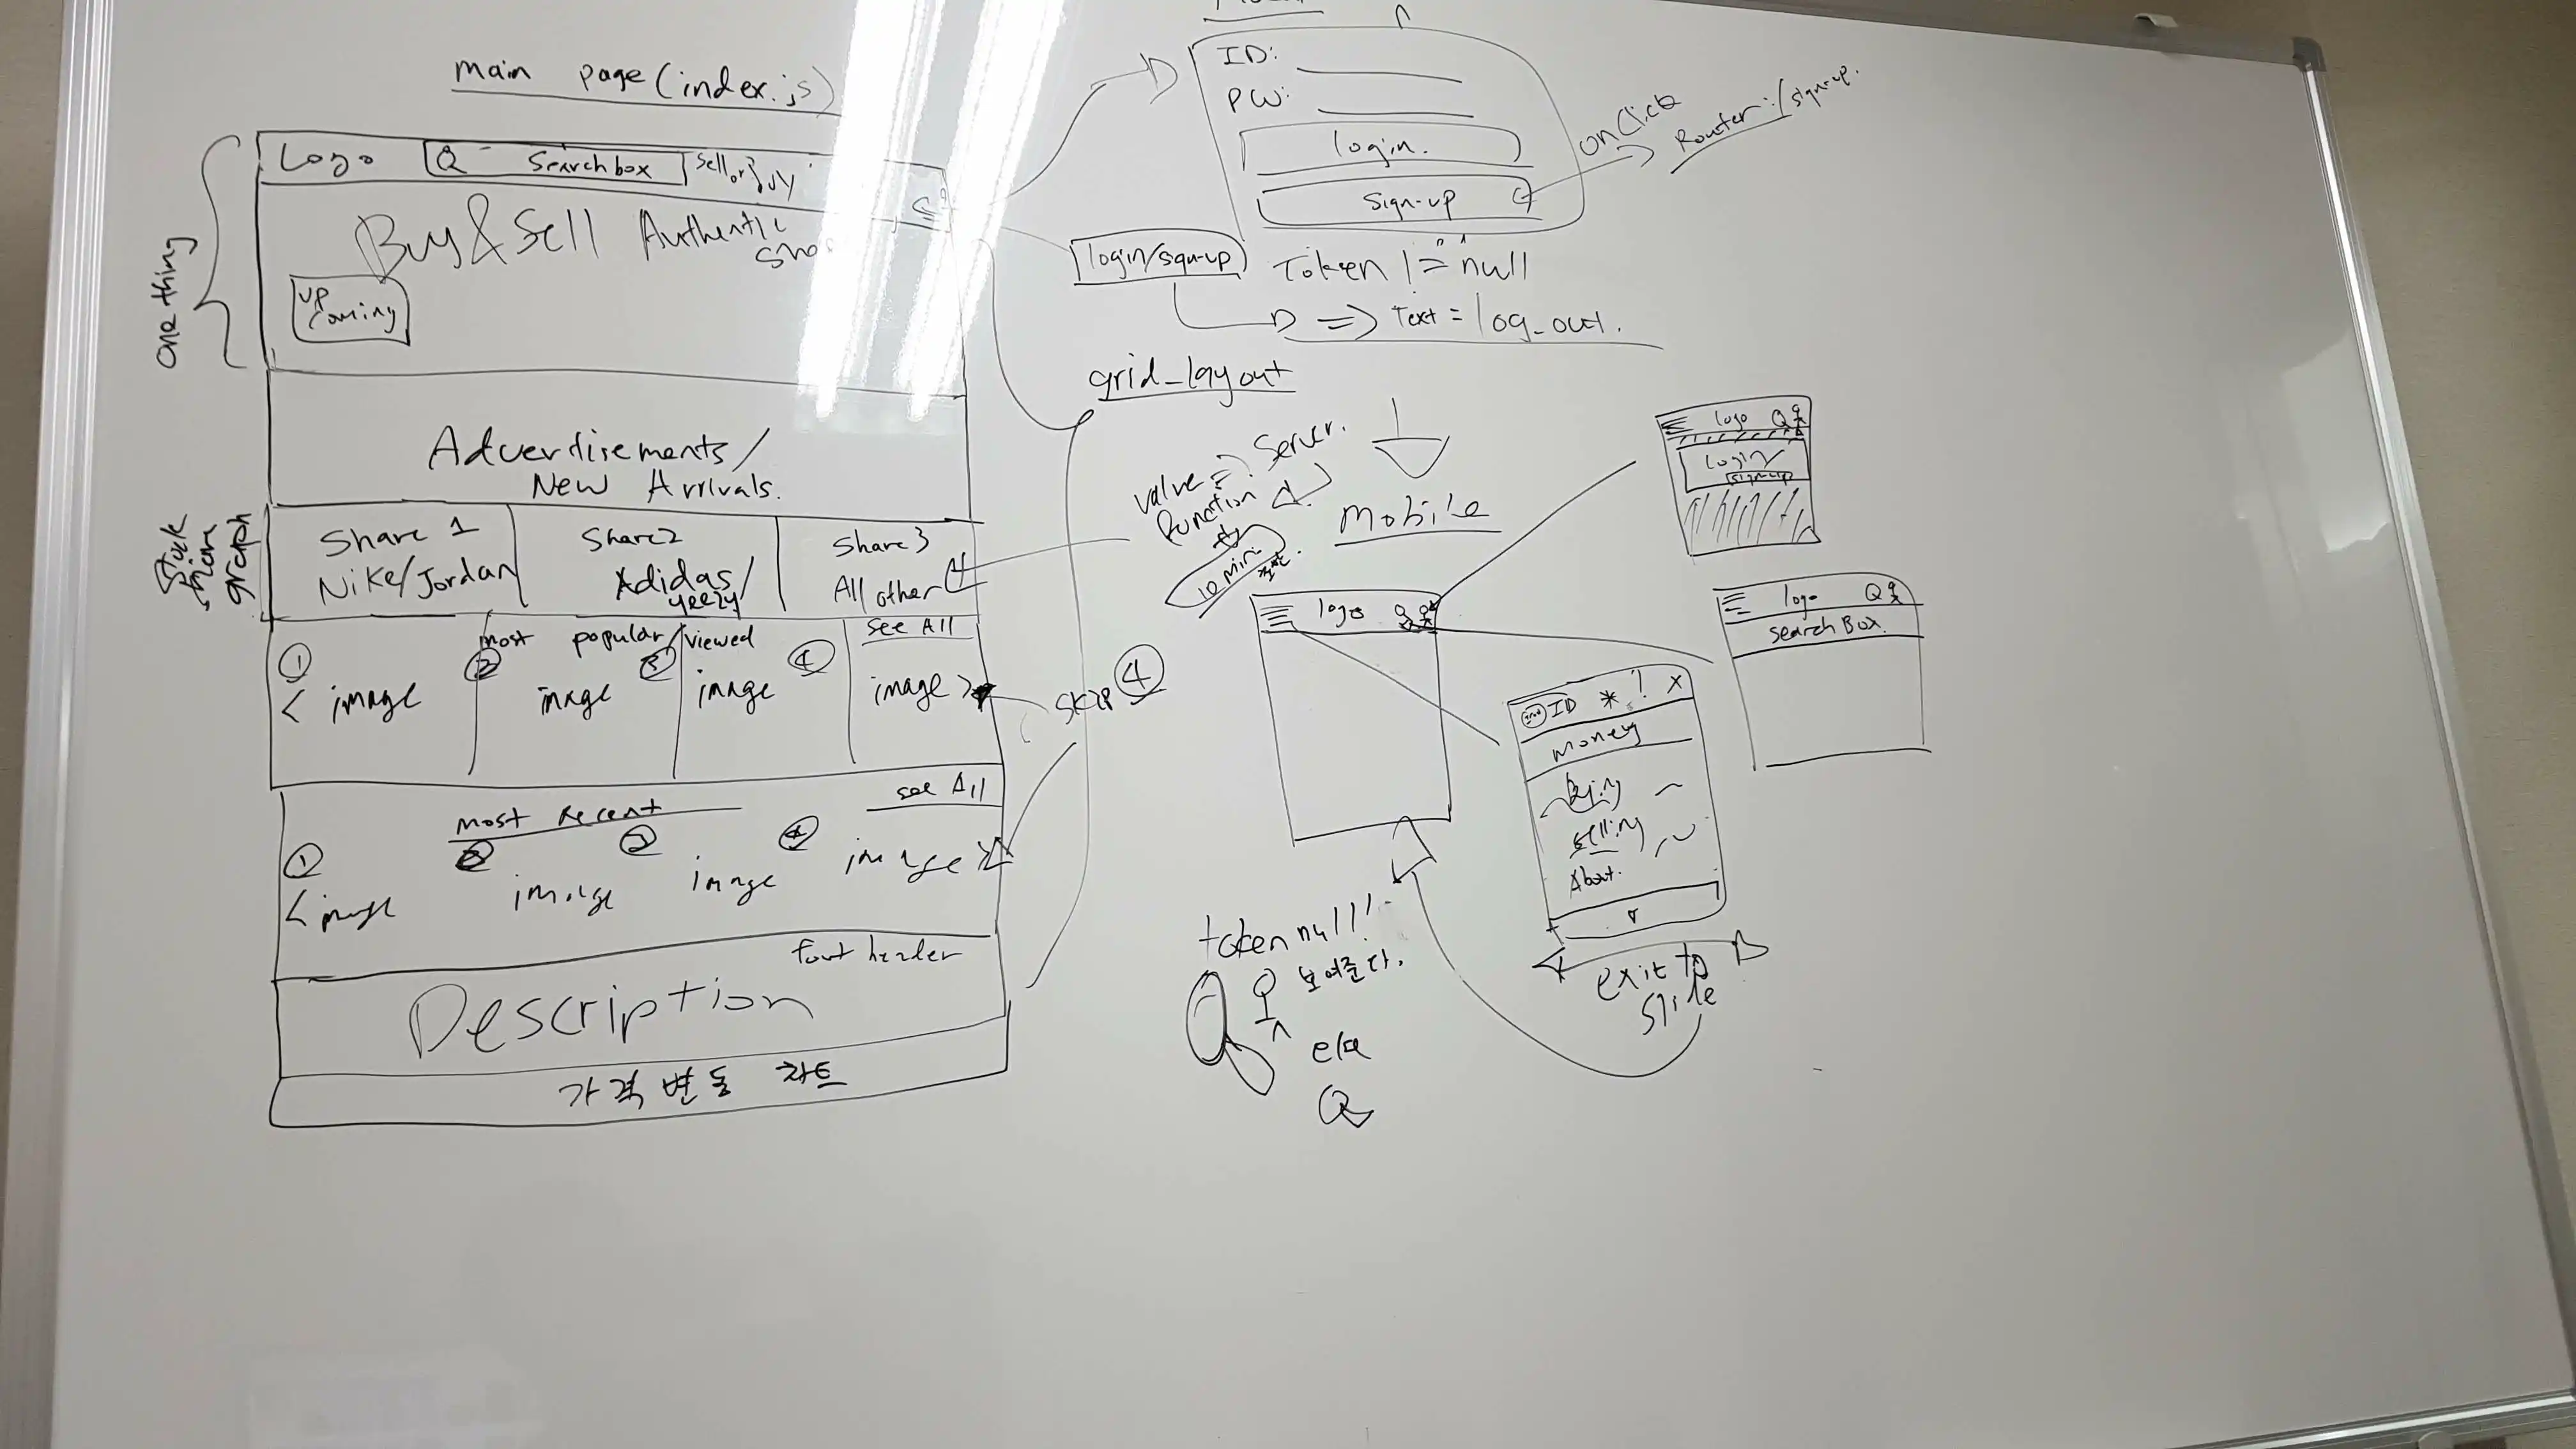 main page (index.js)
Logo
Q Searchbox
Sell or Buy
Buy & Sell Authentic
UP
Coming
one thing
Advertisements/
New Arrivals.
graph
Share 1
Nike/Jordan
Share2
Adidas/
yeezy
Share 3
All other
most popular/viewed
see All
① ② ③ ④
< image image image image >
most Recent
see All
①
④
< image image image image >
font header
Description
가격 변동 차트
ID:
PW:
login.
Sign-up
onClick
Router:/sign-up.
login/sign-up
Token != null
=> Text = log_out.
grid_layout
value => Server.
function
10 min.
skip ④
Mobile
logo
logo
login/
sign-up
logo
search Box
ID * ! X
money
selling
About.
exit to
slide
token null!
보여준다.
else